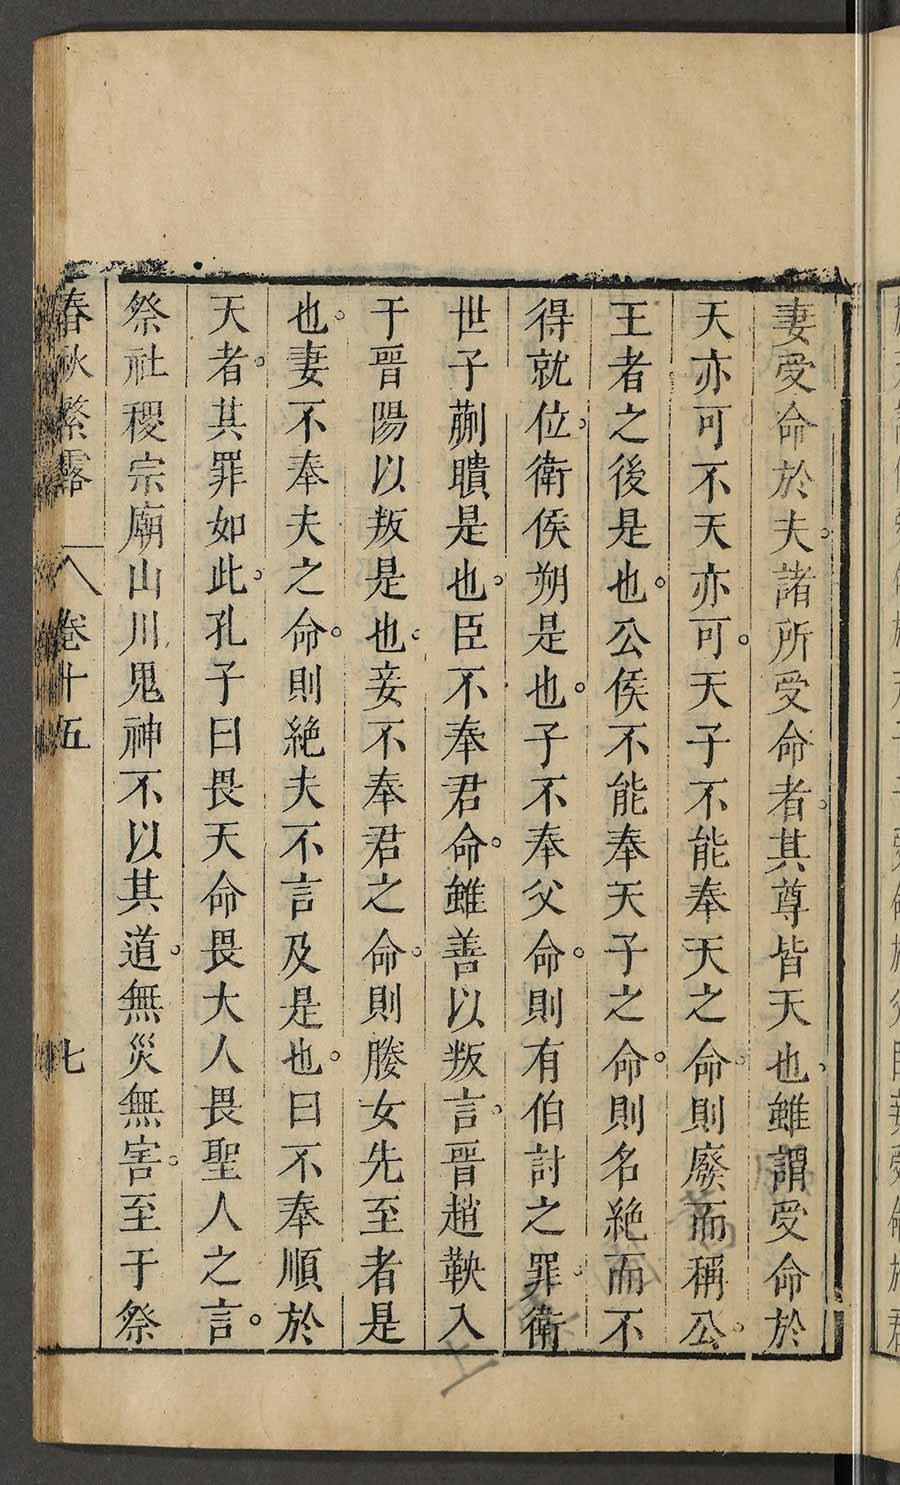 妻受命於夫。諸所受命者。其尊皆天也。雖謂受命於
天亦可不天亦可。天子不能奉天之命。則廢而稱公。
王者之後是也。公侯不能奉天子之命。則名絶而不
得就位。衛侯朔是也。子不奉父命。則有伯討之罪。衛
世子蒯聵是也。臣不奉君命。雖善以叛言。晉趙鞅入
于晉陽以叛是也。妾不奉君之命。則媵女先至者是
也。妻不奉夫之命。則絶夫不言及是也。曰不奉順於
天者。其罪如此。孔子曰畏天命畏大人畏聖人之言。
祭社稷宗廟山川鬼神不以其道。無災無害。至于祭
春秋繁露 卷十五 七